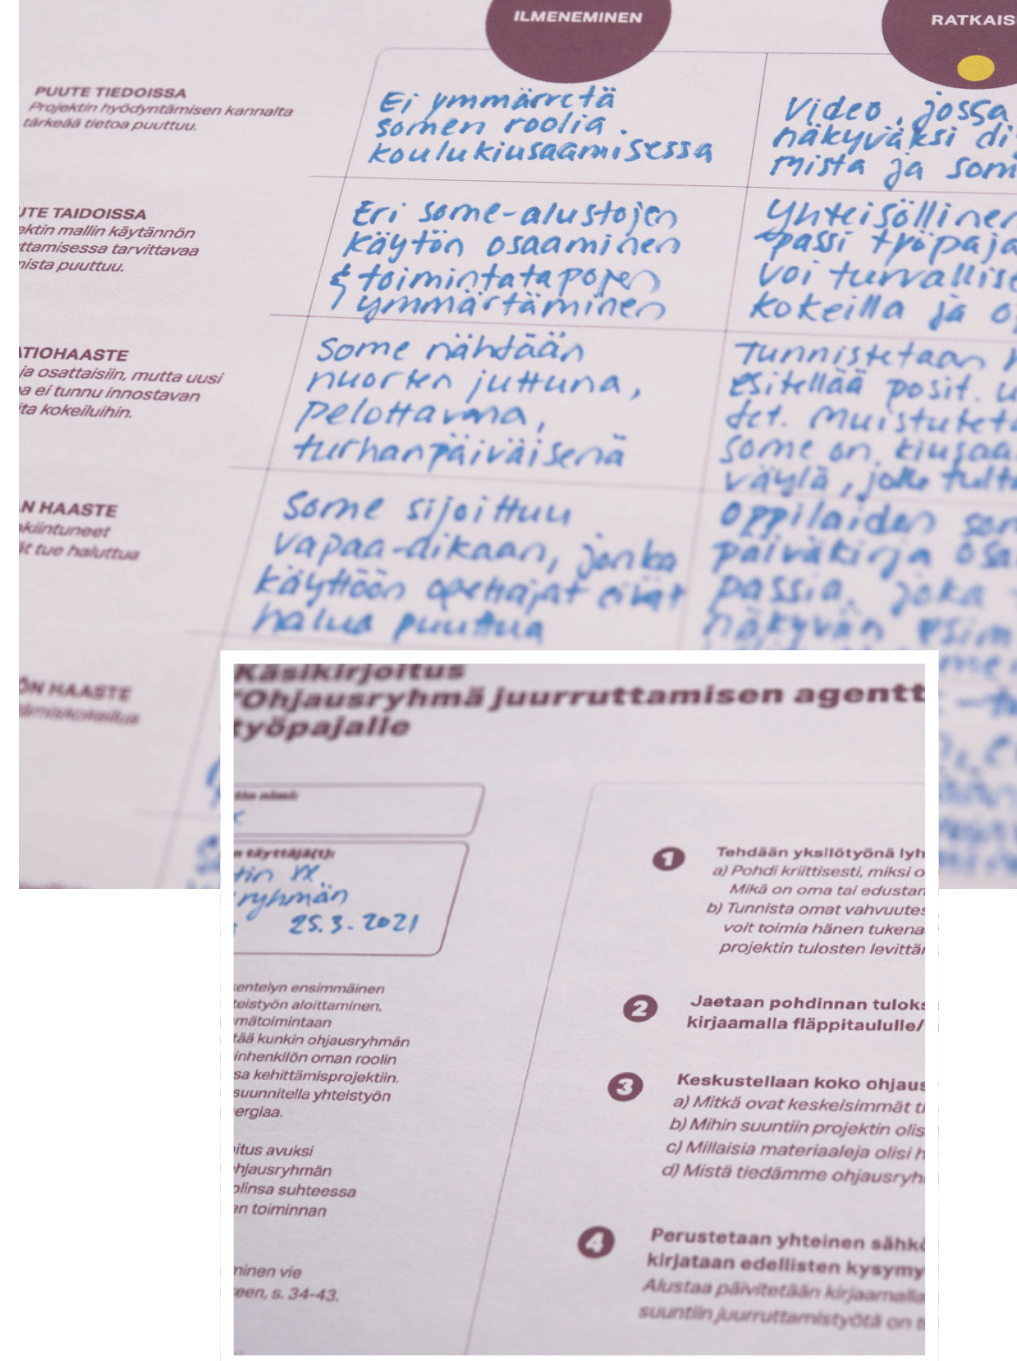 ILMENEMINEN
RATKAIS
PUUTE TIEDOISSA
Projektin hyödyntämisen kannalta
tärkeää tietoa puuttuu.
Ei ymmärretä
somen roolia.
koulukiusaamisessa
Video, jossa
näkyväksi di
mista ja som
UTE TAIDOISSA
ektin mallin käytännön
ttamisessa tarvittavaa
mista puuttuu.
Eri some-alustojen
käytön osaaminen
& toimintatapojen
ymmärtäminen
Yhteisöllinen
passi työpaja
voi turvallise
kokeilla ja o
TIOHAASTE
ja osattaisiin, mutta uusi
a ei tunnu innostavan
ita kokeiluihin.
Some nähdään
nuorten juttuna,
pelottavana,
turhanpäiväisenä
Tunnistetaan
esitellää posit. u
det. Muistuteta
some on kiusaa
väylä, jolle tulta
N HAASTE
kiintuneet
it tue haluttua
Some sijoittuu
vapaa-aikaan, jonka
käyttöön opettajat eivät
halua puuttua
Oppilaiden som
päiväkirja osa
passia, joka
näkyvän esim
ÖN HAASTE
Käsikirjoitus
"Ohjausryhmä juurruttamisen agentt
työpajalle
tin nimi:
n täyttäjä(t):
tin XX
ryhmän
25.3.2021
entelyn ensimmäinen
teistyön aloittaminen.
mätoimintaan
tää kunkin ohjausryhmän
inhenkilön oman roolin
sa kehittämisprojektiin.
suunnitella yhteistyön
ergiaa.
itus avuksi
hjausryhmän
olinsa suhteessa
an toiminnan
minen vie
een, s. 34-43.
1 Tehdään yksilötyönä lyh
a) Pohdi kriittisesti, miksi o
Mikä on oma tai edustan
b) Tunnista omat vahvuutes
voit toimia hänen tukena
projektin tulosten levittän
2 Jaetaan pohdinnan tuloks
kirjaamalla fläppitaululle/
3 Keskustellaan koko ohjaus
a) Mitkä ovat keskeisimmät ti
b) Mihin suuntiin projektin olis
c) Millaisia materiaaleja olisi h
d) Mistä tiedämme ohjausryh
4 Perustetaan yhteinen sähkö
kirjataan edellisten kysymy
Alustaa päivitetään kirjaamalla
suuntiin juurruttamistyötä on t